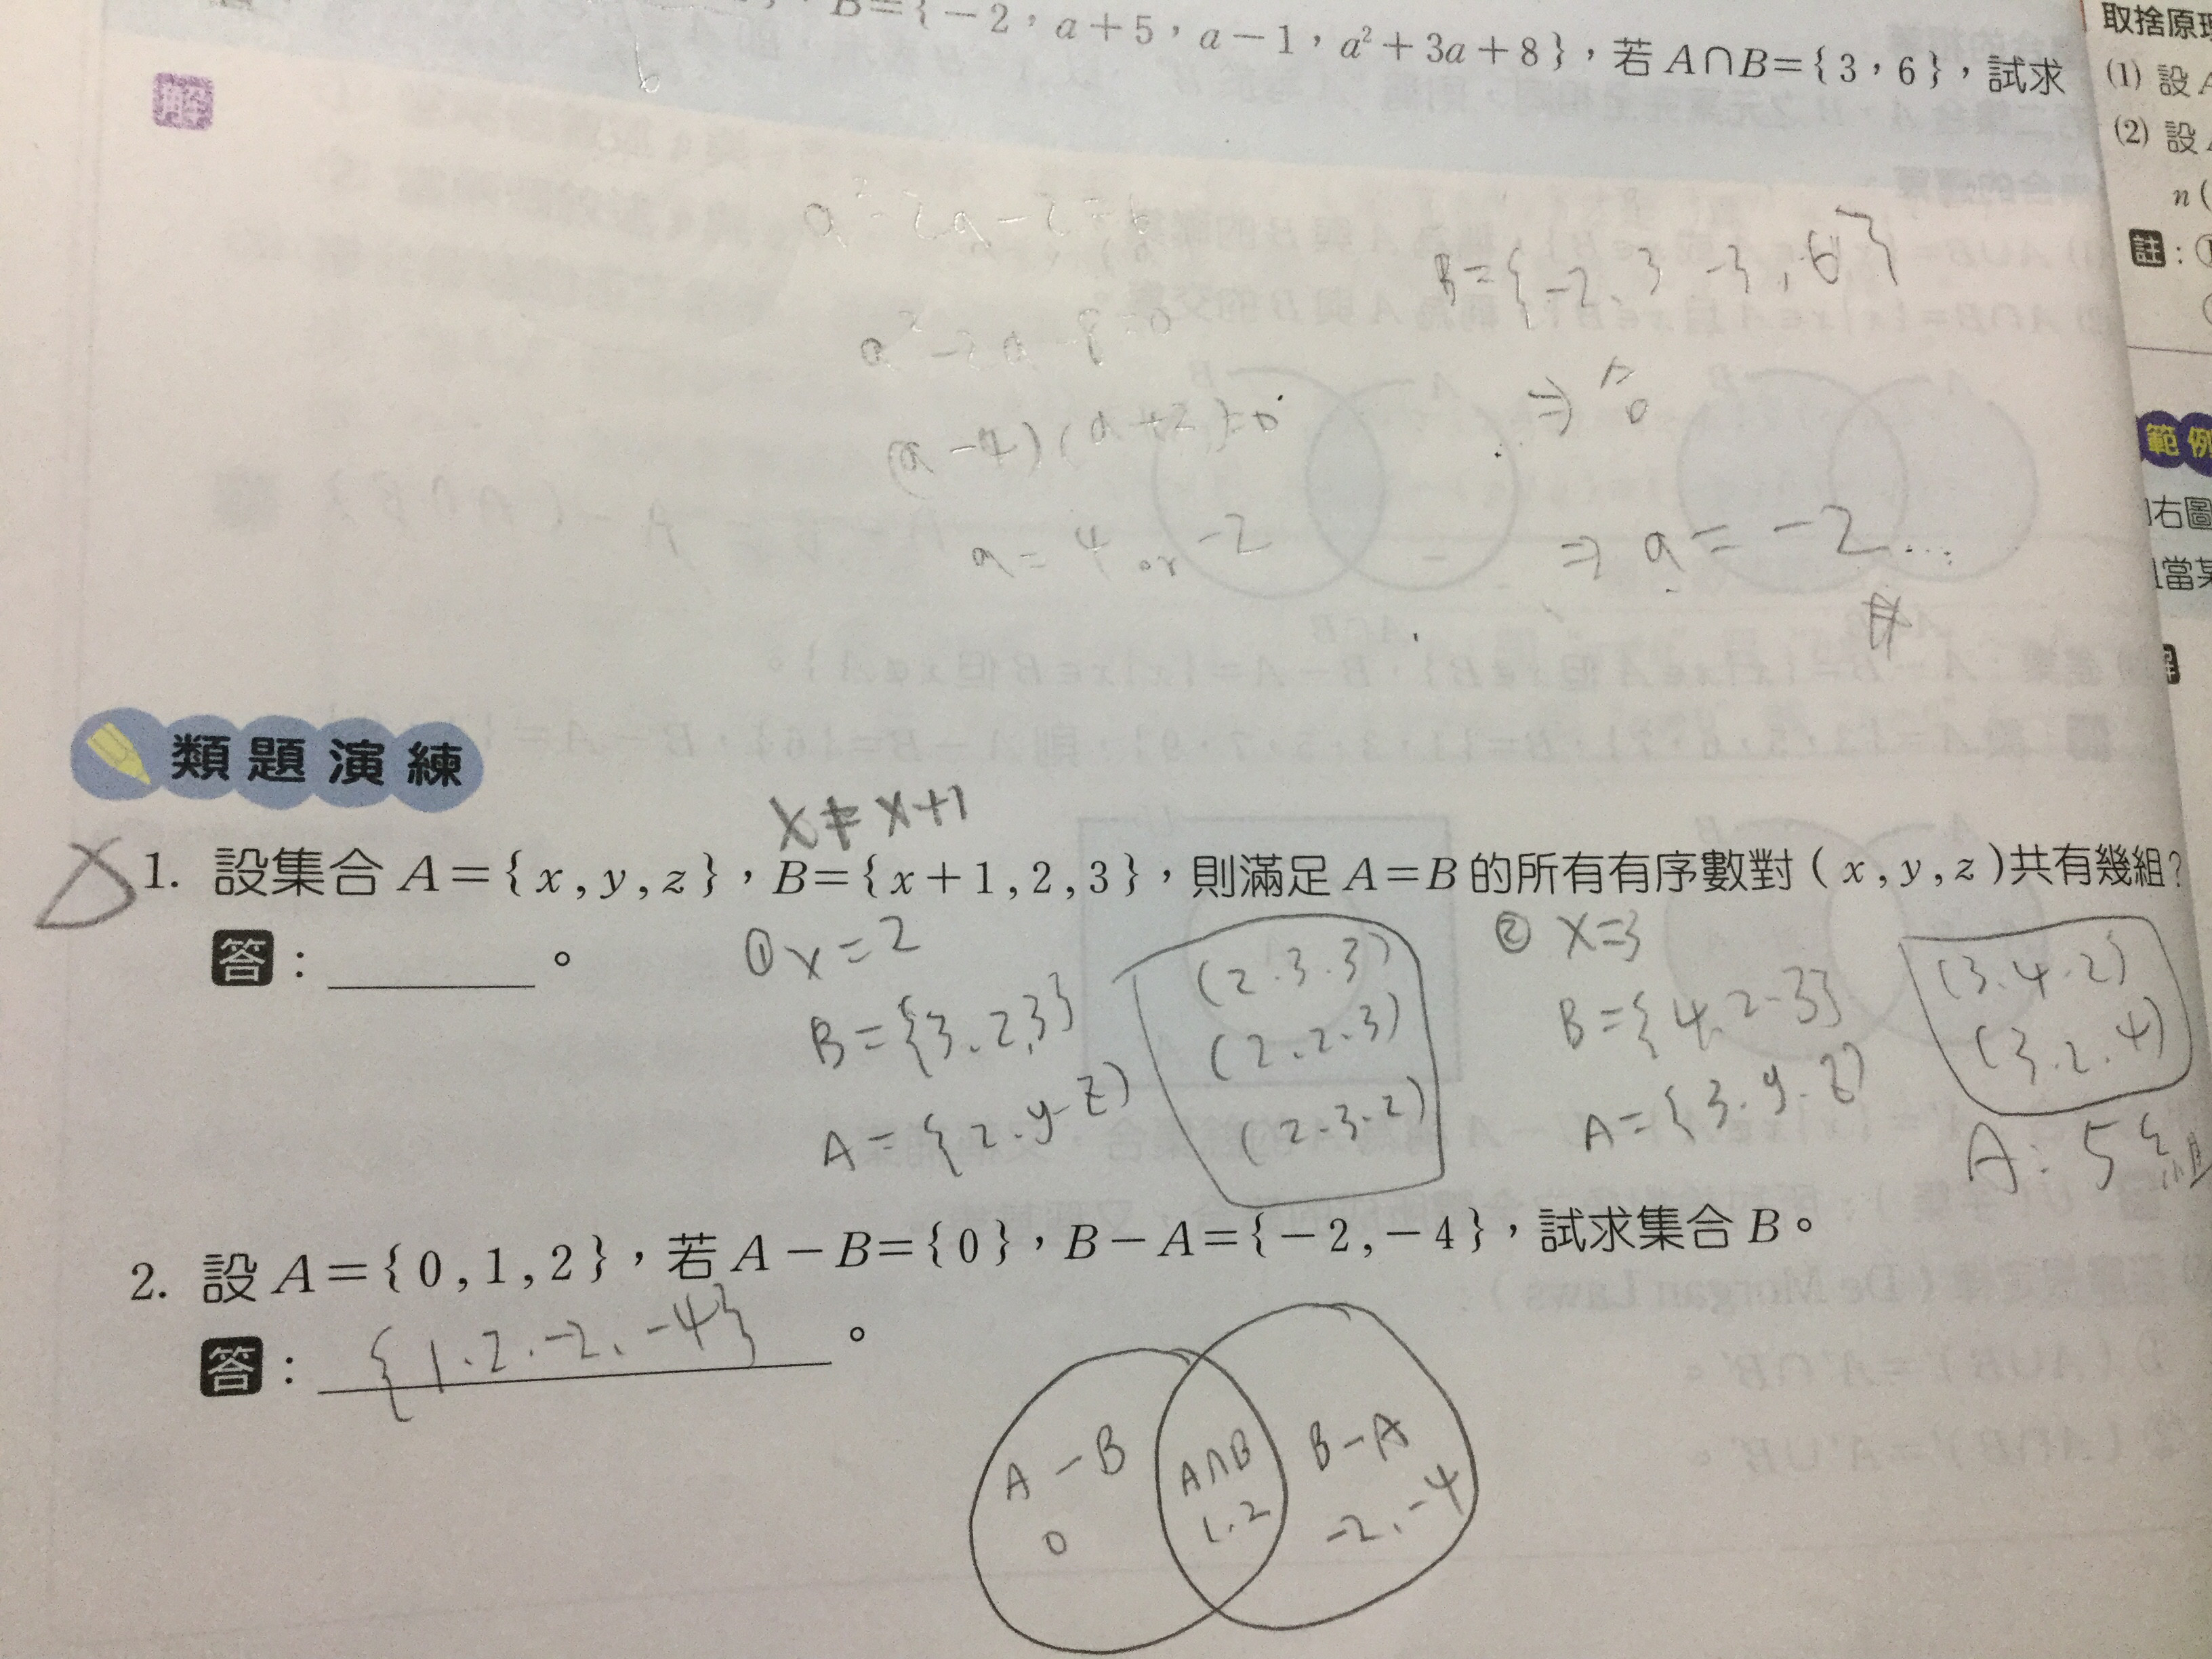 B={-2,a+5,a-1,a²+3a+8},若A∩B={3,6},試求
6
解
a²-2a-2=6
a²-2a-8=0
(a-4)(a+2)=0
a=4 or -2
B={-2,3,-3,6}
⇒
⇒ a=-2
類題演練
x≠x+1
1. 設集合A={x,y,z},B={x+1,2,3},則滿足A=B的所有有序數對(x,y,z)共有幾組?
答:
。
① x=2
B={3.2,3}
A={2.y.z}
(2.3.3)
(2.2.3)
(2.3.2)
② x=3
B={4.2.3}
A={3.y.z}
(3.4.2)
(3.2.4)
A:5組
2. 設A={0,1,2},若A-B={0},B-A={-2,-4},試求集合B。
答:{1.2.-2.-4}。
A-B
0
A∩B
1.2
B-A
-2.-4
取捨原理
(1) 設A
(2) 設A
n(
註:
範例
右圖
當某